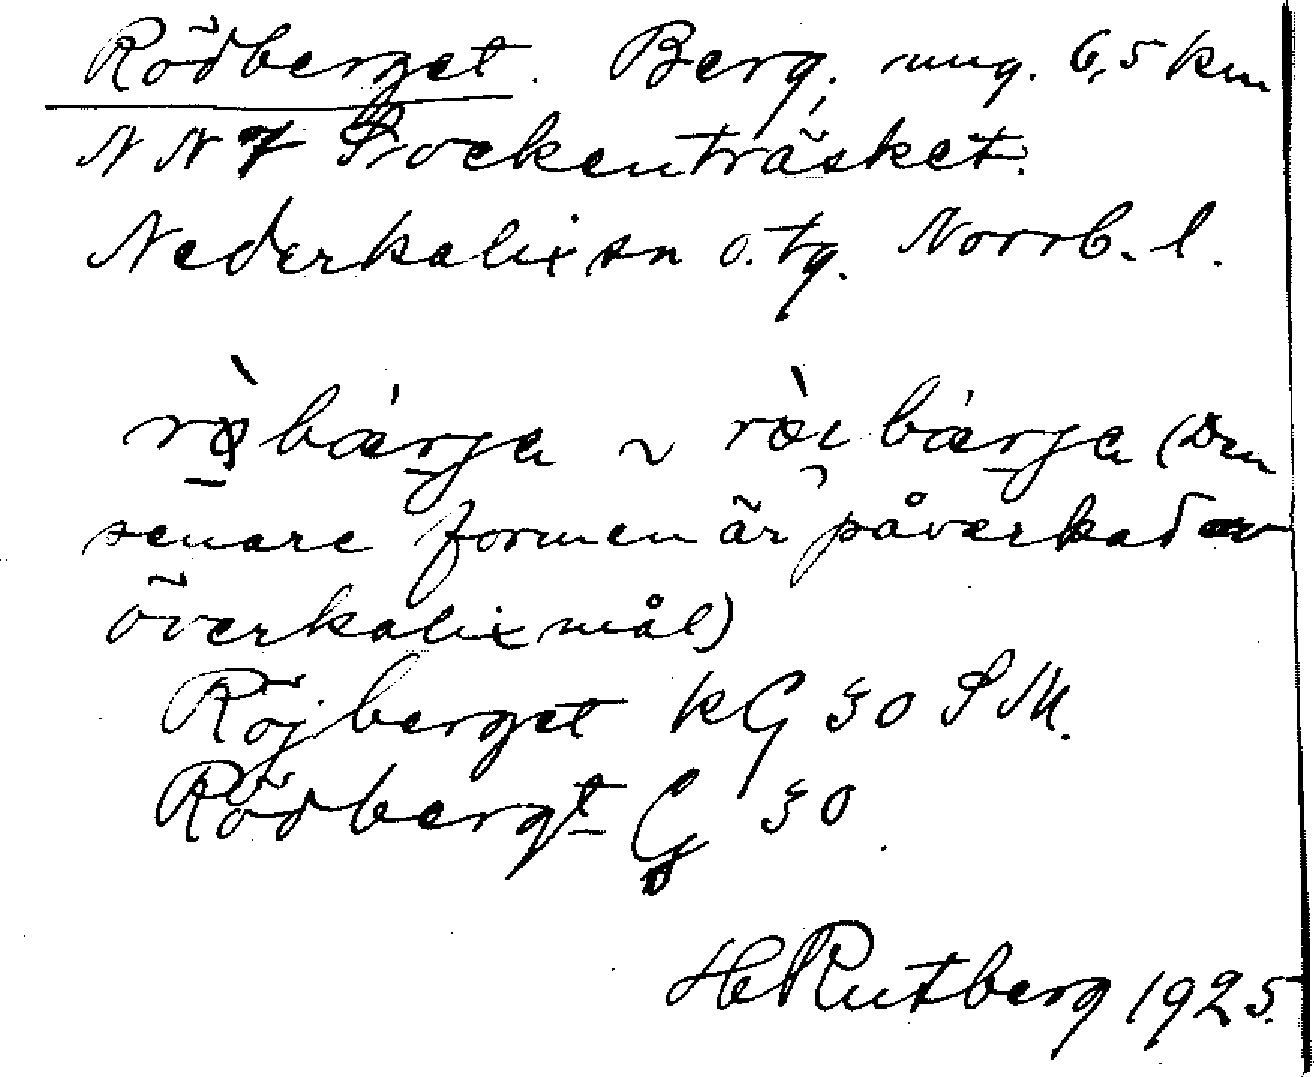 Rödberget. Berg, ung. 6,5 km
NNV Sockenträsket.
Nederkalix sn o. tg. Norrb. l.
bærja ~ bærja (Den
senare formen är påverkad av
överkalixmål)
Röjberget kG 30 S M.
Rödbergt G 30
H Rutberg 1925.